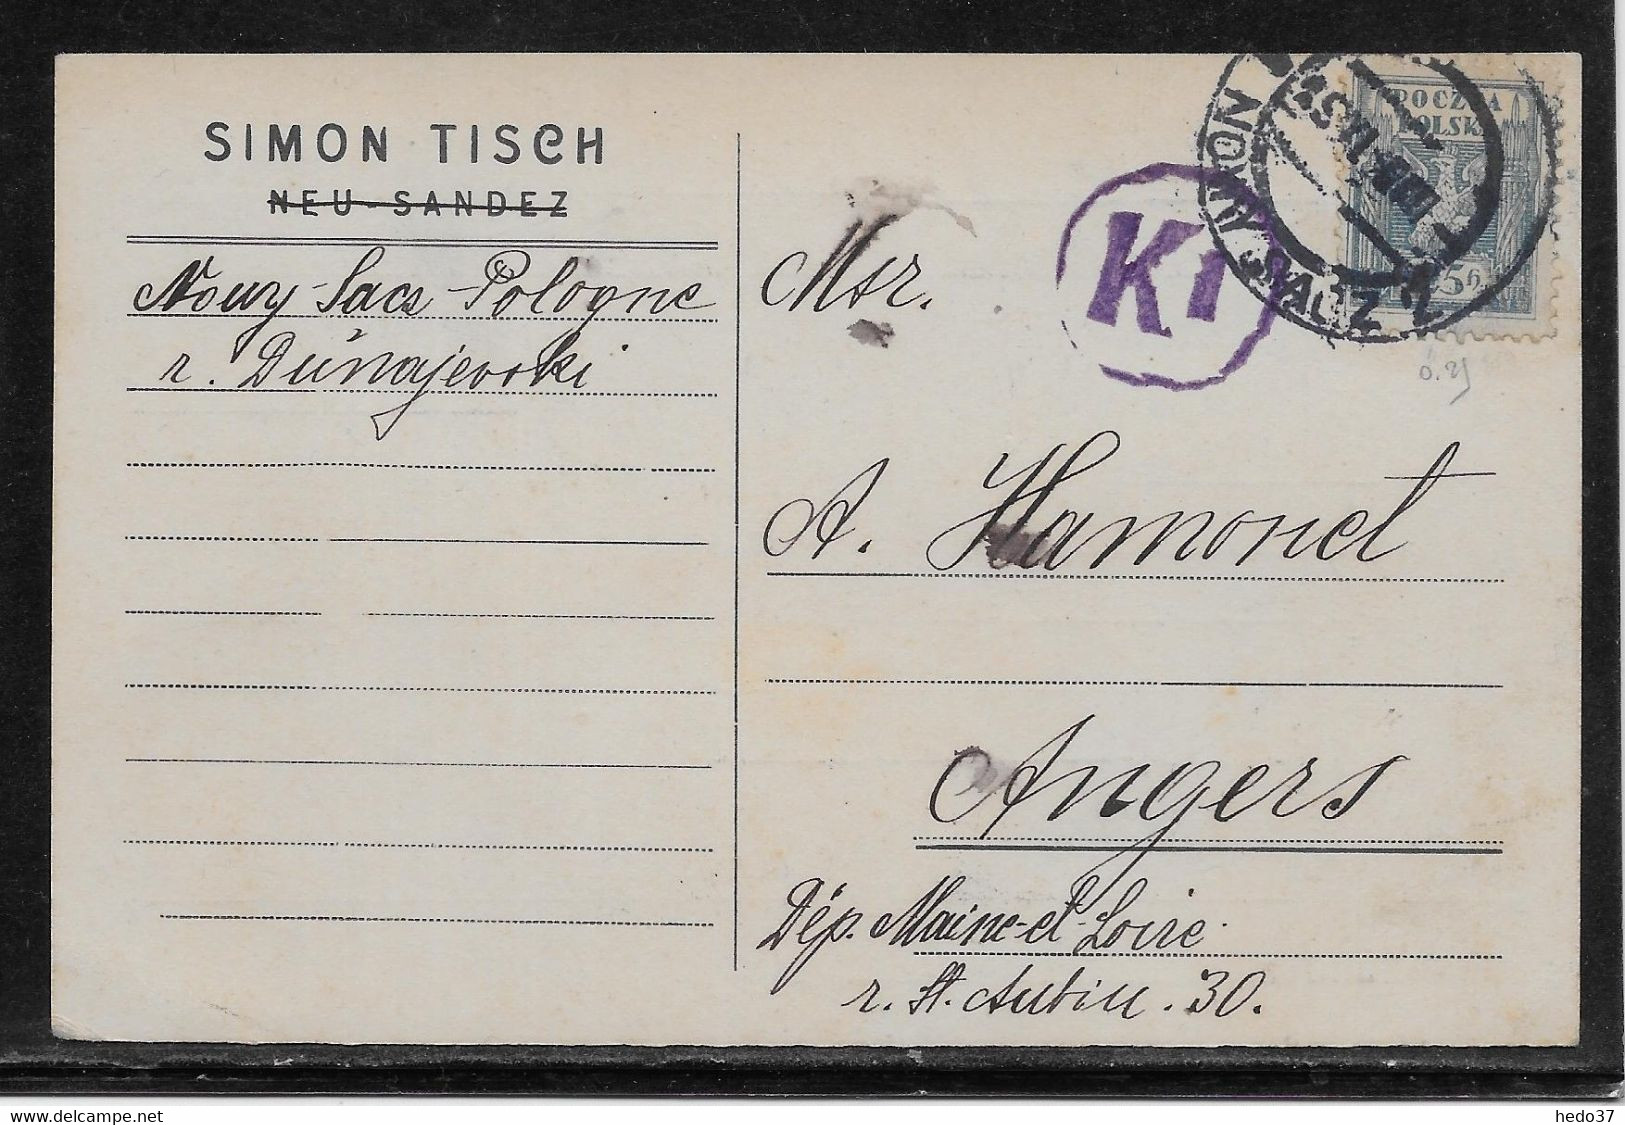 SIMON TISCH
NEU-SANDEZ
Nowy-Sacs-Pologne
r. Dunajevski
Msr.
K1
POCZTA
POLSKA
NOWY SĄCZ
0.25
A. Hamonet
Angers
Dép. Maine-et-Loire
r. St. Aubin. 30.
www.delcampe.net
hedo37